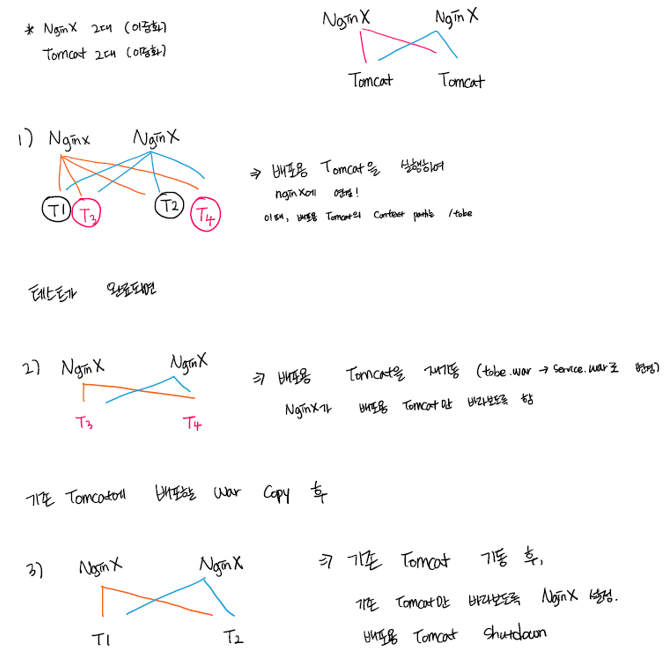 * NginX 2대 (이중화)
Tomcat 2대 (이중화)
NginX NginX
Tomcat Tomcat
1) Nginx NginX
T1 T3 T2 T4
⇒ 배포용 Tomcat을 실행하여
nginx에 연결!
이때, 배포용 Tomcat의 Context path는 /tobe
테스트가 완료되면
2) NginX NginX
T3 T4
⇒ 배포용 Tomcat을 재기동 (tobe.war → service.war로 변경)
NginX가 배포용 Tomcat만 바라보도록 함
기존 Tomcat에 배포할 war Copy 후
3) NginX NginX
T1 T2
⇒ 기존 Tomcat 기동 후,
기존 Tomcat만 바라보도록 NginX 설정.
배포용 Tomcat shutdown